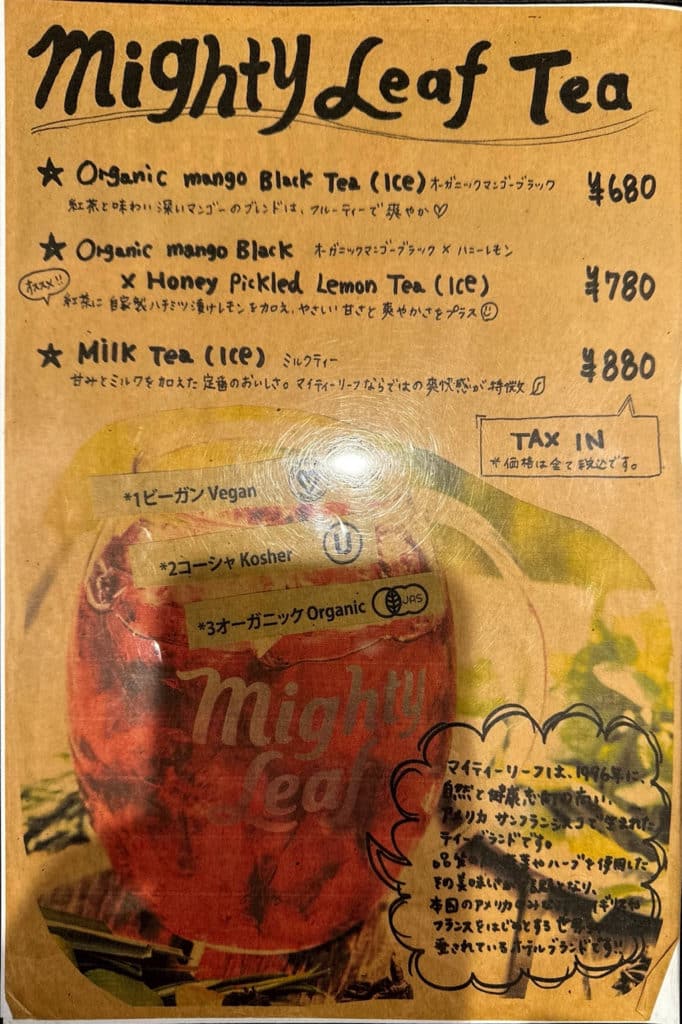 Mighty Leaf Tea
★ Organic mango Black Tea (Ice) オーガニックマンゴーブラック ¥680
紅茶と味わい深いマンゴーのブレンドは、フルーティーで爽やか♡
★ Organic mango Black オーガニックマンゴーブラック × ハニーレモン
× Honey Pickled Lemon Tea (Ice) ¥780
オススメ!!
紅茶に自家製ハチミツ漬けレモンを加え、やさしい甘さと爽やかさをプラス
★ Milk Tea (Ice) ミルクティー ¥880
甘みとミルクを加えた定番のおいしさ。マイティーリーフならではの爽快感が特徴
TAX IN
*価格は全て税込です。
*1ビーガン Vegan
*2コーシャ Kosher U
*3オーガニック Organic JAS
Mighty
Leaf
マイティーリーフは、1996年に、
自然と健康志向の高い、
アメリカ サンフランシスコで生まれた
ティーブランドです。
品質の 茶葉やハーブを使用した
その美味しさが となり、
本国のアメリカのみな イギリスや
フランスをはじめとする世界
愛されているホテルブランドです!!